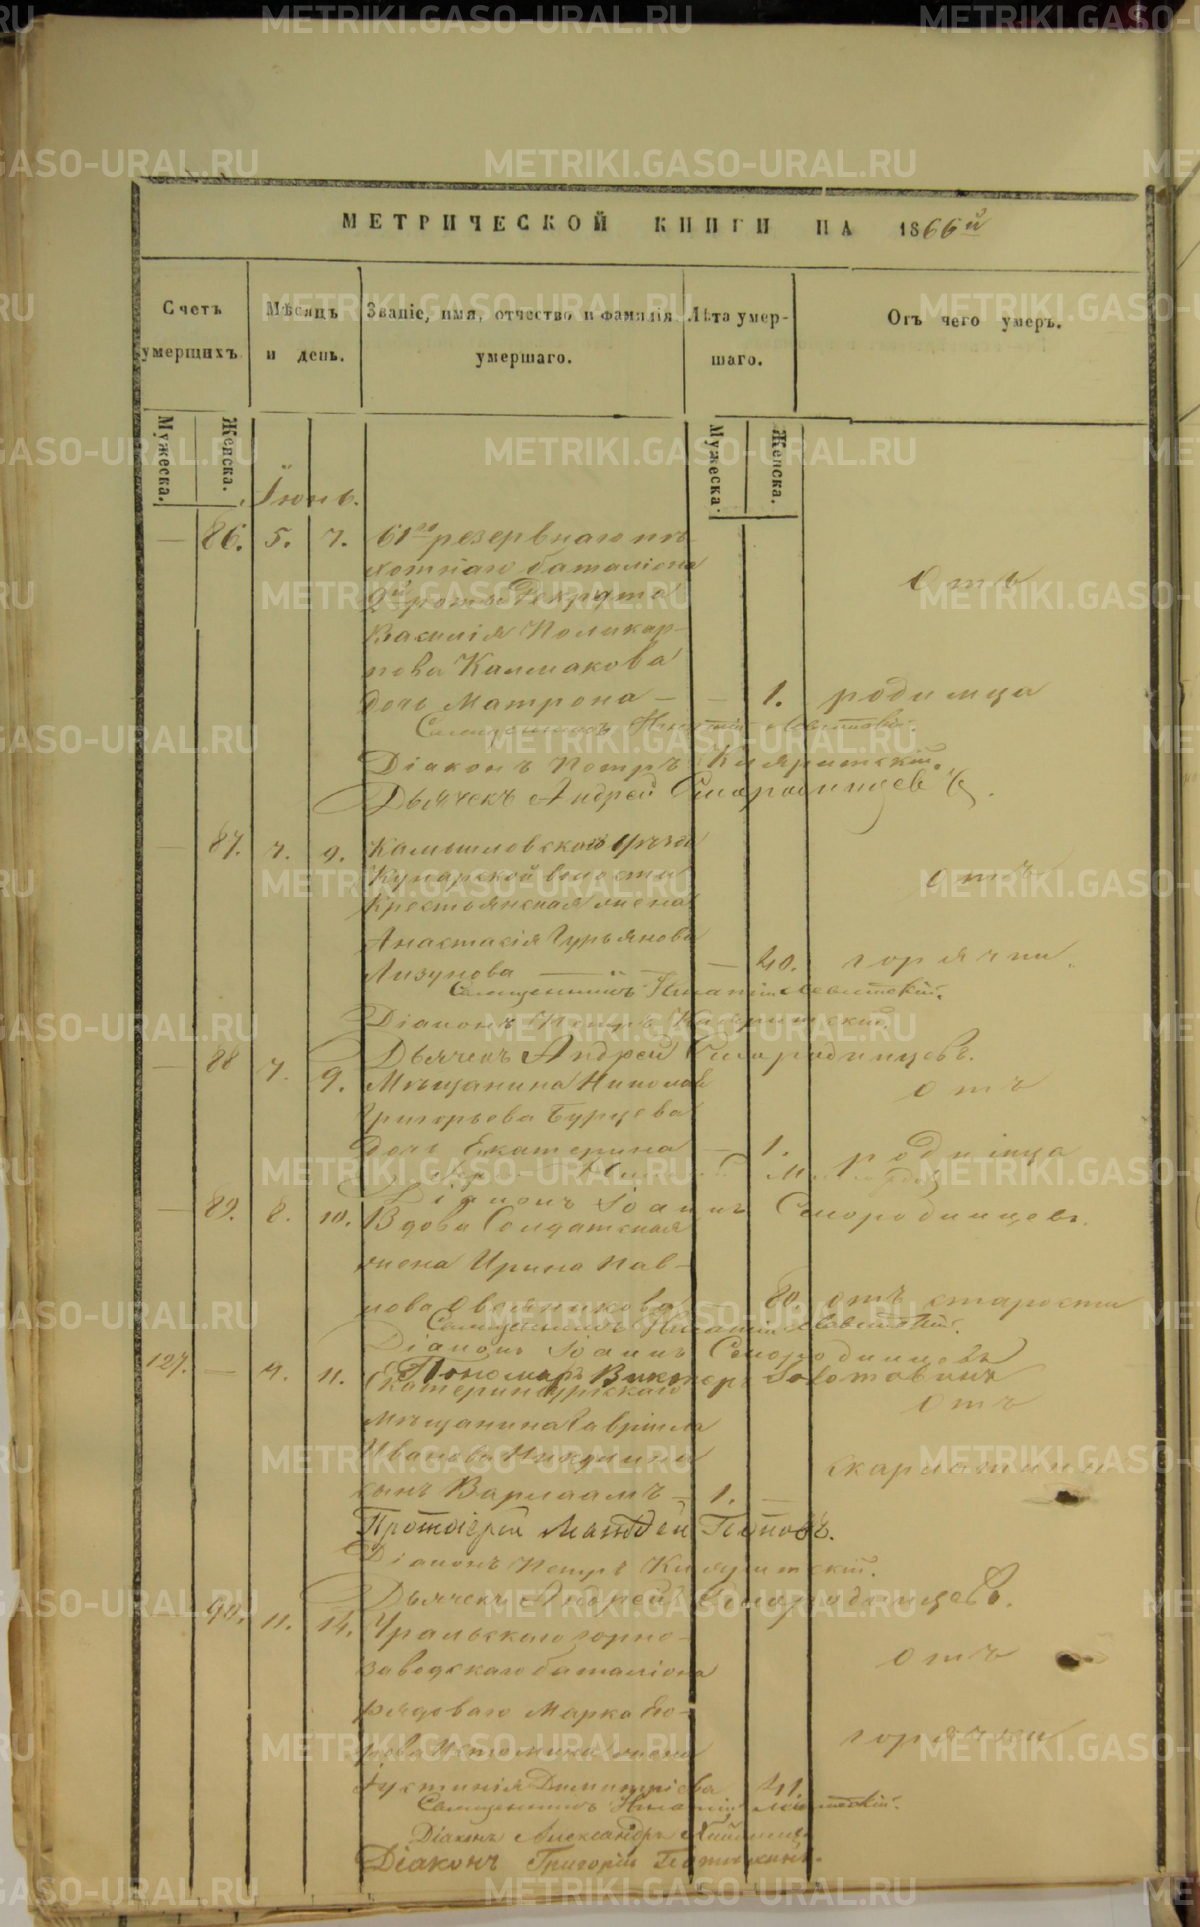 МЕТРИЧЕСКОЙ КНИГИ НА 1866й
Счетъ умершихъ.
Мѣсяцъ и день.
Званіе, имя, отчество и фамилія умершаго.
Лѣта умершаго.
Отъ чего умеръ.
Мужеска.
Женска.
Мужеска.
Женска.
Іюнь.
— 86. 5. 7. 61го резервнаго пѣ-
хотнаго баталіона
Отъ
9й роты Рекрута
Василія Поликар-
пова Калмакова
дочь Матрона — — 1. родимца
Священникъ Игнатій Левитскій.
Діаконъ Петръ
Дьячекъ Андрей Смородинцевъ.
— 87. 7. 9. Камышловскаго уѣзда
Кунарской волости
Отъ
Крестьянская жена
Анастасія Гурьянова
Лизунова — — 40. горячки.
Священникъ Игнатій Левитскій.
Діаконъ Петръ
Дьячекъ Андрей Смородинцевъ.
— 88 7. 9. Мѣщанина Николая
Отъ
Григорьева Бурцева
дочь Екатерина — 1. родимца
Діаконъ Іоаннъ Смородинцевъ.
— 89. 8. 10. Вдова Солдатская
жена Ирина Пав-
лова Овсяникова — 80. отъ старости
Священникъ Игнатій Левитскій.
Діаконъ Іоаннъ Смородинцевъ
Пономарь Викторъ Золотавинъ
127. — 9. 11. Екатеринбургскаго
Отъ
мѣщанина Гавріила
Иванова Никулина
скарлатины
сынъ Варлаамъ — 1. —
Протоіерей Матфей Поповъ.
Діаконъ Петръ
Дьячекъ Андрей Смородинцевъ.
— 90. 11. 14. Уральскаго горно-
заводскаго баталіона
Отъ
рядоваго Марка Его-
рова Истомина жена
горячки
Іустинія Димитріева 41.
Священникъ Игнатій Левитскій.
Діаконъ Александръ
Діаконъ Григорій
METRIKI.GASO-URAL.RU